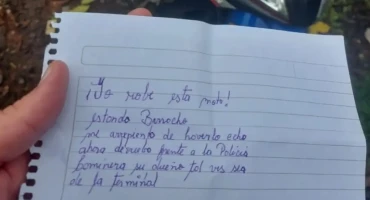 ¡Yo robe esta moto!
estando Borracho
me arrepiento de haverlo echo
ahora devuelvo frente a la Policia
 su dueño tal ves sea
de la terminal